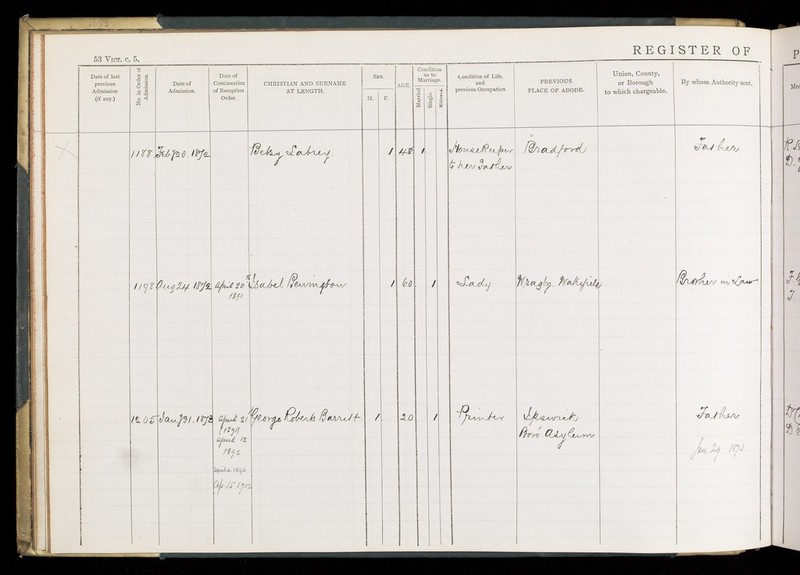 53 VICT. c. 5.
REGISTER OF
Date of last previous Admission (if any.)
No. in Order of Admission.
Date of Admission.
Date of Continuation of Reception Order.
CHRISTIAN AND SURNAME AT LENGTH.
SEX.
M. F.
AGE.
Condition as to Marriage.
Married. Single. Widowed.
Condition of Life, and previous Occupation
PREVIOUS PLACE OF ABODE.
Union, County, or Borough to which chargeable.
By whose Authority sent.
1188 Feby 20 1872 Betsy 1 48 1 Housekeeper Bradford Father
to her Father
1198 Aug 24 1872 April 20th Isabel Bevington 1 60 1 Lady Wragby. Wakefield Brother in Law
1891
1205 Jany 31. 1873 April 21 George Roberts Barritt 1 20 1 Printer Ipswich Father
1891 Boro' Asylum Jan 29 1873
April 12
1892
Ap 15 1902